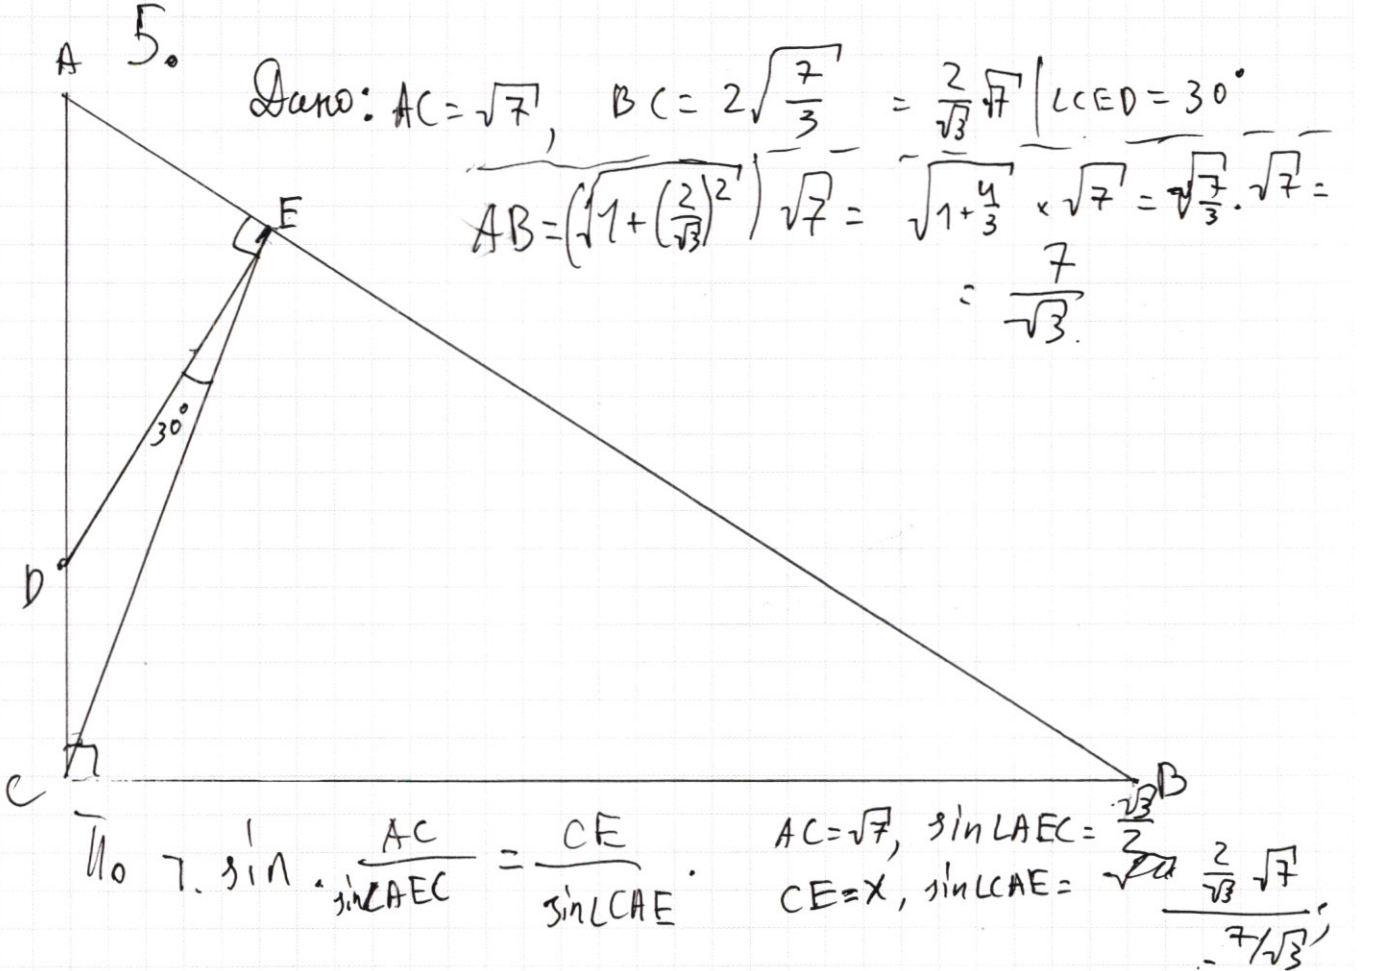 5.
A
Дано: AC = √7, BC = 2√(7/3) = 2/√3 √7 | ∠CED = 30°
AB = (√(1 + (2/√3)²)) √7 = √(1 + 4/3) × √7 = √(7/3) · √7 =
= 7/√3.
E
30°
D
C
B
По т. sin. AC/sin∠AEC = CE/sin∠CAE.
AC = √7, sin∠AEC = √3/2
CE = x, sin∠CAE = (2/√3 √7)/(7/√3);